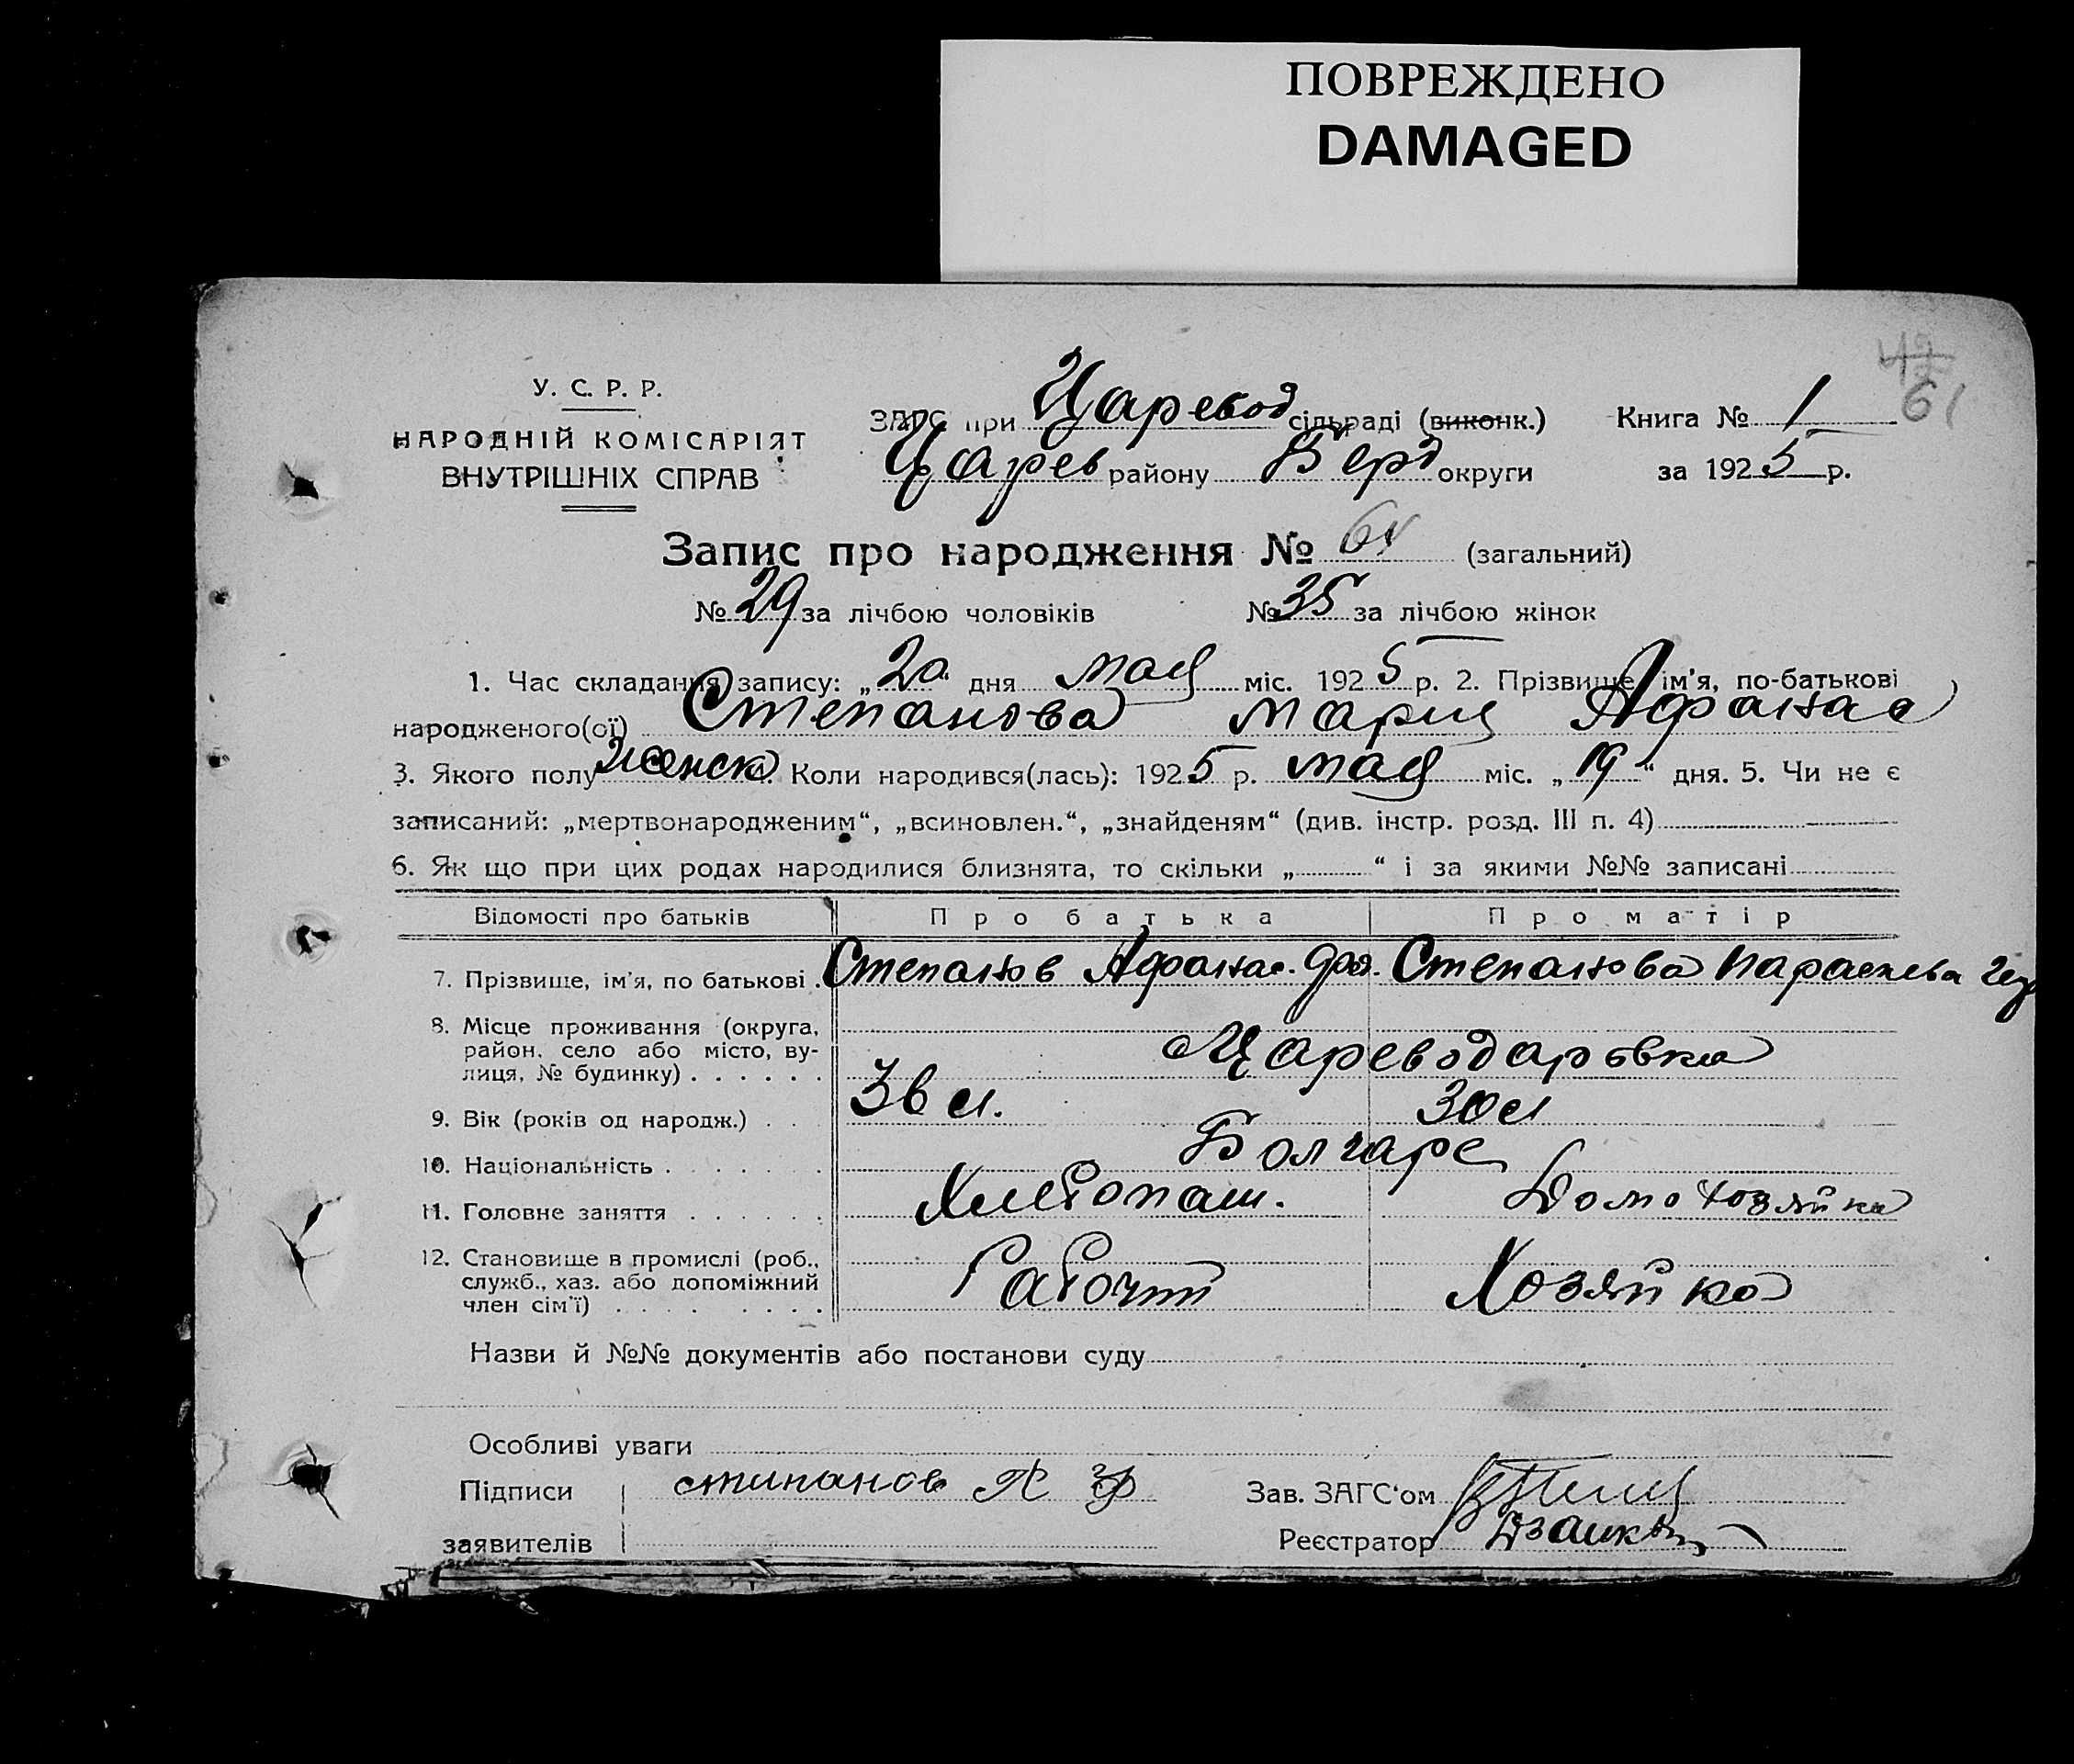 ПОВРЕЖДЕНО
DAMAGED
47
61
У. С. Р. Р.
НАРОДНІЙ КОМІСАРІЯТ
ВНУТРІШНІХ СПРАВ
ЗАГС при Царевод сільраді (виконк.) Книга № 1
Царев району Берд округи за 1925 р.
Запис про народження № 64 (загальний)
№ 29 за лічбою чоловіків № 35 за лічбою жінок
1. Час складання запису: „20“ дня мая міс. 1925 р. 2. Прізвище, ім’я, по-батькові
народженого(ої) Степанова Мария Афанас
3. Якого полу женск. Коли народився(лась): 1925 р. мая міс. „19“ дня. 5. Чи не є
записаний: „мертвонародженим“, „всиновлен.“, „знайденям“ (див. інстр. розд. III п. 4)
6. Як що при цих родах народилися близнята, то скільки „ “ і за якими №№ записані
Відомості про батьків Про батька Про матір
7. Прізвище, ім’я, по батькові . Степанов Афанас. Степанова Параскева
8. Місце проживання (округа,
район, село або місто, ву-
лиця, № будинку) . . . . . . Цареводаровка
9. Вік (років од народж.) . . . 36 л. 30 л
10. Національність . . . . . . . Болгаре
11. Головне заняття . . . . . . Хлебопаш. Домохозяйка
12. Становище в промислі (роб.,
служб., хаз. або допоміжний
член сім’ї) . . . . . . . . . Рабочий Хозяйка
Назви й №№ документів або постанови суду
Особливі уваги
Підписи
заявителів
стипанов А
Зав. ЗАГС‘ом
Реєстратор